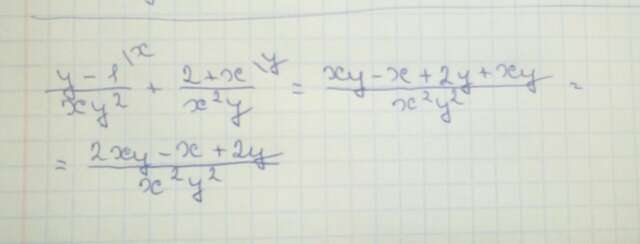 \frac{y-1^{\backslash x}}{xy^2} + \frac{2+x^{\backslash y}}{x^2y} = \frac{xy-x+2y+xy}{x^2y^2} =
= \frac{2xy-x+2y}{x^2y^2}